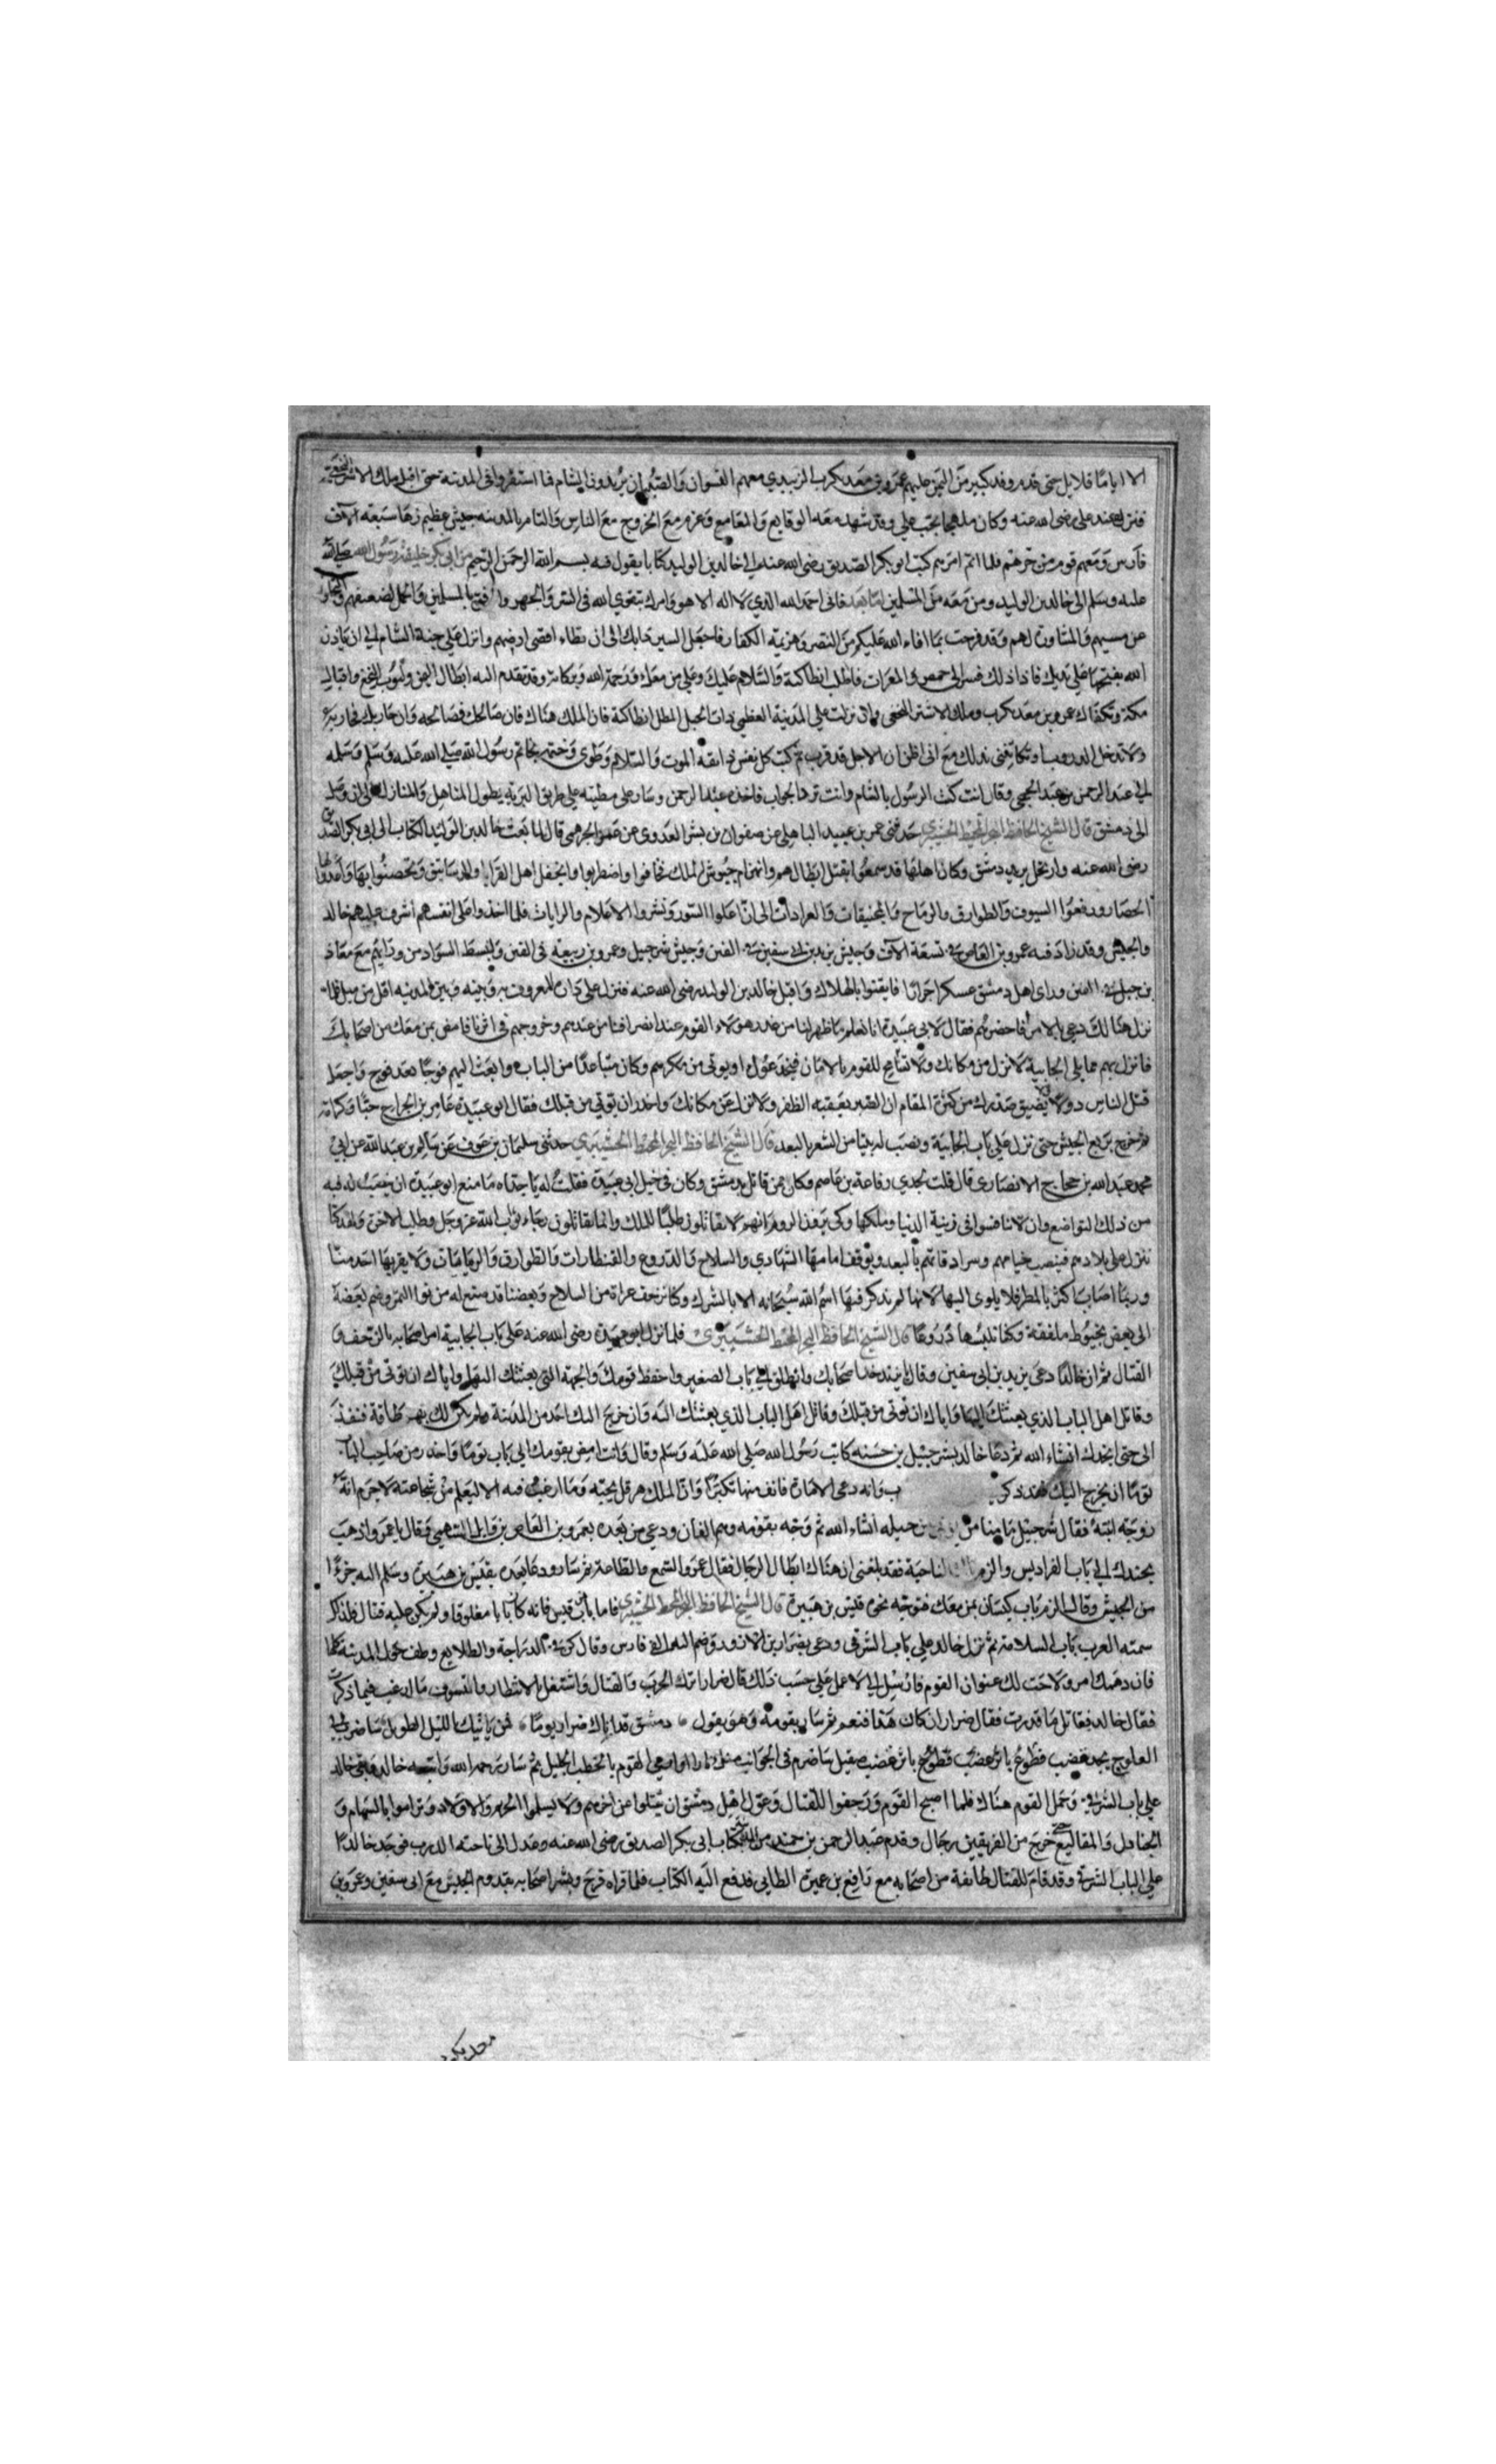 الا اياما قلايل حتى قدم وفد كبير من اليمن عليهم عمرو بن معد يكرب الزبيدي معهم النسوان والصبيان يريدون الشام فما استقروا في المدينة حتى اقبل ملك الاشتر النخعي
فنزل عند علي رضى الله عنه وكان ملهجا بحب علي وقد شهد معه الوقايع والمقامع وعزم مع الخروج مع الناس والتام بالمدينه جيش عظيم زها سبعه الاف
فارس ومعهم قوم من جرهم فلما اتم امرهم كتب ابو بكر الصديق رضى الله عنه الي خالد بن الوليد كتابا يقول فيه بسم الله الرحمن الرحيم من ابي بكر خليفة رسول الله صلى الله
عليه وسلم الى خالد بن الوليد ومن معه من المسلمين اما بعد فانى احمد الله الذي لا اله الا هو وامرك بتقوي الله في السر والجهر وارفق بالمسلمين واحمل لضعيفهم وتجاوز
عن مسيهم والمشاورة لهم وقد فرحت بما افاء الله عليكم من النصر وهزيمة الكفار فاجعل السير دابك الى ان تطاء اقصى ارضهم وانزل على جنة الشام الى ان ياذن
الله بفتحها على يديك فاذا ذلك فسر الى حمص والمعرات فاطلب انطاكية والسلام عليك وعلي من معك ورحمة الله وبركاته وقد تقدم اليه ابطال اليمن وليوث النخع واقيال
مكة وتكفاك عمرو بن معد يكرب وملك الاشتر النخعى واذا نزلت علي المدينة العظمى ذات الجبل المطل انطاكية فان الملك هناك فان صالحك فصالحه وان حاربك فحاربه
ولا تدخل الدروب او تكاتبني بذلك مع انى اظن ان الاجل قد قرب ثم كتب كل نفس ذايقة الموت والسلام وطوى وختمه بخاتم رسول الله صلي الله عليه وسلم وسلمه
الى عبد الرحمن بن عبد الجمحي وقال انت كنت الرسول بالشام وانت ترد الجواب فاخذه عبد الرحمن وسار على مطيته على طريق البرية يطول المناهل والمنازل الى ان وصل
الى دمشق قال الشيخ الحافظ البحر المحيط الخشيبري حدثنى عمر بن عبيد الباهلى عن صفوان بن بشر العدوى عن عمرو الجرهمي قال لما بعث خالد بن الوليد الكتاب الى ابي بكر الصديق
رضى الله عنه وارتحل يريد دمشق وكان اهلها قد سمعوا بقتل ابطالهم وانهزام جيوش الملك فخافوا واضطربوا وانجفل اهل القرايا والرساتيق وتحصنوا بها واعدوا لها
الحصار ورفعوا السيوف والطوارق والرماح والمجنيقات والعرادات الى ان اعلوا السور ونشروا الاعلام والرايات فلما اخذوا على انفسهم اشرف عليهم خالد
والجيش وقد زاد فيه عمرو بن العاص في تسعة الاف وجيش يزيد بن ابي سفين في الفين وجيش شرحبيل وعمرو بن ربيعة في الفين وانبسط السواد من ورايهم مع معاذ
بن جبل في الفين وراى اهل دمشق عسكرا جرارا فايقنوا بالهلاك واقبل خالد بن الوليد رضى الله عنه فنزل على الدير المعروف به وبينه وبين المدينه اقل من ميل فلما
نزل هنالك دعى بالامرا فاحضرهم فقال لابي عبيدة انا نعلم ما ظهر لنا من غدر هولاء القوم عند انصرافنا من عندهم وخروجهم في اثرنا فامض بمن معك من اصحابك
فانزل بهم على الجابية لا تزل من مكانك ولا تسامح للقوم بالامان فيخدعوك او يوتى من مكرهم وكان متباعدا من الباب وابعث اليهم فوجا بعد فوج واجعل
قتل الناس دولا ولا يضيق صدرك من كثرة المقام ان الصبر يعقبه الظفر ولا تزل عن مكانك واحذر ان توتي من قبلك فقال ابو عبيدة عامر بن الجراح حبا وكرامة
ثم خرج بربع الجيش حتى نزل على باب الجابية ونصب له بيتا من الشعر بالبعد قال الشيخ الحافظ البحر المحيط الخشيبري حدثنى سليمان بن عوف عن سالم بن عبد الله عن ابي
محمد عبد الله بن حجاج الانصارى قال قلت لجدي رفاعة بن عاصم وكان ممن قاتل بدمشق وكان في خيل ابي عبيدة فقلت له يا جداه ما منع ابو عبيدة ان ينصب له قبه
من ذلك لتواضع وان لا تنافسوا فى زينة الدنيا وملكها وكى يعرف الروم انهم لا يقاتلون طلبا للملك وانما يقاتلون رجاء ثواب الله عز وجل وطلب الاخرة ولقد كنا
ننزل على بلادهم فينصب خيامهم وسرادقاتهم بالبعد ويوقف امامها الشهادي والسلاح والدروع والقنطارات والطوارق والرمامات ولا يقربها احد منا
وربما اصاب اكثرنا المطر فلا ياوى اليها لانها لم يذكر فيها اسم الله سبحانه الا بالشرك وكنا نزحف عراة من السلاح وبعضنا قد صنع له من نوا التمر وضم بعضه
الى بعض بخيوط ملفقة وكنا نلبسها دروعا قال الشيخ الحافظ البحر المحيط الخشيبرى فلما نزل ابو عبيدة رضى الله عنه على باب الجابية امر اصحابه بالزحف و
القتال ثم ان خالدا دعى يزيد بن ابي سفين وقال يا يزيد خذ اصحابك وانطلق الي باب الصغير واحفظ قومك والجهة التي بعثتك اليها واياك ان توتى من قبلك
وقاتل اهل الباب الذي بعثتك اليها واياك ان توتى من قبلك وقاتل اهل الباب الذي بعثتك اليه وان خرج اليك احد من المدينة ولم يكن لك بهم طاقة فنفذ
الى حتى انجدك انشاء الله ثم دعا خالد بشرحبيل بن حسنه كاتب رسول الله صلى الله عليه وسلم وقال وانت امض بقومك الى باب توما واحذر من صاحب الباب
توما ان يخرج اليك فقد ذكر وانه دعى الامارة فانف منها تكبرا وان الملك هرقل يحبه وما ارغب فيه الا ليعلم من شجاعته لا جرم انه
زوجه ابنته فقال شرحبيل ما بينا من حيله انشاء الله ثم وجه بقومه وهم الفان ودعى من بعده بعمرو بن العاص بن وايل السهمي فقال يا عمرو اذهب
بجندك الي باب الفراديس والزم الناحية فقد بلغنى ان هناك ابطال الرجال فقال عمرو السمع والطاعة ثم سار ودعا بعده بقيس بن هبيرة وسلم اليه جزءا
من الجيش وقال الزم باب كيسان بمن معك فتوجه نحوه قيس بن هبيرة قال الشيخ الحافظ البحر المحيط الخشيبري فاما باب قيس فانه كان بابا مغلوقا ولم يكن عليه قتال فلذلك
سمته العرب باب السلامة ثم نزل خالد على باب الشرقي ودعى بضرار بن الازور وضم اليه الفى فارس وقال كن في الدراجة والطلايع وطف حول المدينة كلها
فان دهمك امر ولاحت لك عنوان القوم فارسل الي لاعمل علي حسب ذلك قال ضرار اترك الحرب والقتال واشتغل بالانتظار والتسوف ما ارغب فيما ذكرت
فقال خالد فقاتل ما قدرت فقال ضرار ان كان هذا فنعم ثم سار بقومه وهو يقول دمشق قد اتاك ضرار يوما فمن ياتيك بالليل الطويل ساضرب في
العلوج بحد عضب قطوع باتر عضب قطوع باتر غضب صقيل ساضرم في الجوانب منك نارا وارمي القوم بالخطب الجليل ثم سار يرحمه الله واتبعه خالد وبقى خالد
علي باب الشرقي وحمل القوم هناك فلما اصبح القوم وزحفوا للقتال وعول اهل دمشق ان يقتلوا عن اخرهم ولا يسلموا الحريم والاولاد وتراموا بالسهام و
الجنادل والمقاليع حتى خرج من الفريقين رجال وقدم عبد الرحمن بن حميد من المدينة بكتاب ابى بكر الصديق رضى الله عنه وعدل الى ناحية الدرب فوجد خالدا
علي الباب الشرقي وقد قام للقتال طايفة من اصحابه مع رافع بن عميرة الطايي فدفع اليه الكتاب فلما قراه فرح وبشر اصحابه بقدوم الجيش مع ابى سفين وعمرو بن
معد يكرب